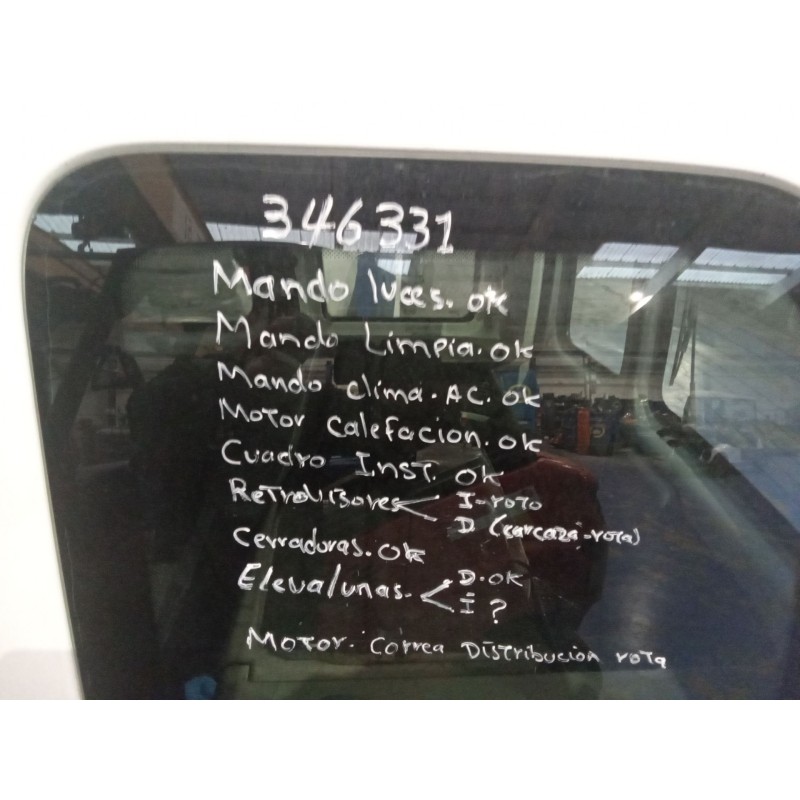 346331
Mando luces. ok
Mando Limpia. ok
Mando clima. AC. ok
Motor calefacion. ok
Cuadro Inst. ok
Retrovisores < I-roto
D (carcaza-rota)
Cerraduras. ok
Elevalunas. < D. ok
I ?
Motor. Correa Distribucion rota